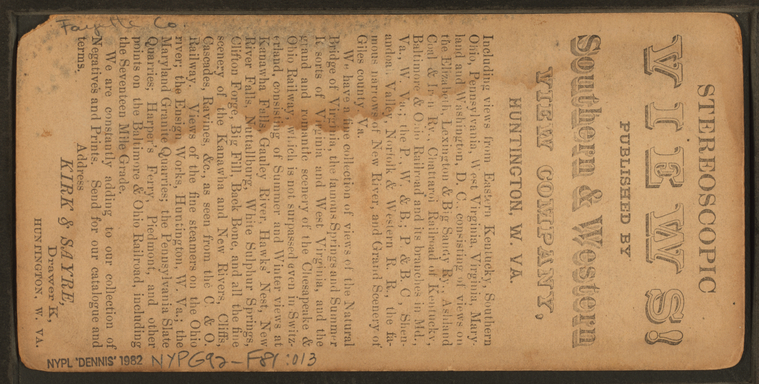 STEREOSCOPIC
VIEWS!
PUBLISHED BY
Southern & Western
VIEW COMPANY,
HUNTINGTON, W. VA.
Including views from Eastern Kentucky, Southern
Ohio, Pennsylvania, West Virginia, Virginia, Mary-
land and Washington, D. C., consisting of views on
the Elizabeth, Lexington & Big Sandy Ry., Ashland
Coal & Iron Ry., Chattaroi Railroad of Kentucky,
Baltimore & Ohio Railroad and its branches in Md.,
Va., W. Va.; the P., W. & B.; P. & B. C.; Shen-
andoa Valley, Norfolk & Western R. R., the fa-
mous narrows of New River, and Grand Scenery of
Giles county Va.
We have a fine collection of views of the Natural
Bridge of Virginia, the famous Springs and Summer
Resorts of Virginia and West Virginia, and the
grand and romantic scenery of the Chesapeake &
Ohio Railway, which is not surpassed even in Switz-
erland, consisting of Summer and Winter views at
Kanawha Falls, Gauley River, Hawks' Nest, New
River Falls, Nuttallburg, White Sulphur Springs,
Clifton Forge, Big Fill, Back Bone, and all the fine
scenery of the Kanawha and New Rivers, Cliffs,
Cascades, Ravines, &c., as seen from the C. & O.
Railway. Views of the fine steamers on the Ohio
river; the Ensign Works, Huntington, W. Va.; the
Maryland Granite Quarries; the Pennsylvania Slate
Quarries; Harper's Ferry, Piedmont, and other
points on the Baltimore & Ohio Railroad, including
the Seventeen Mile Grade.
We are constantly adding to our collection of
Negatives and Prints. Send for our catalogue and
terms.
Address
KIRK & SAYRE,
Drawer K,
HUNTINGTON, W. VA.
Fayette Co.
NYPL 'DENNIS' 1982 NYPG92-F89:013